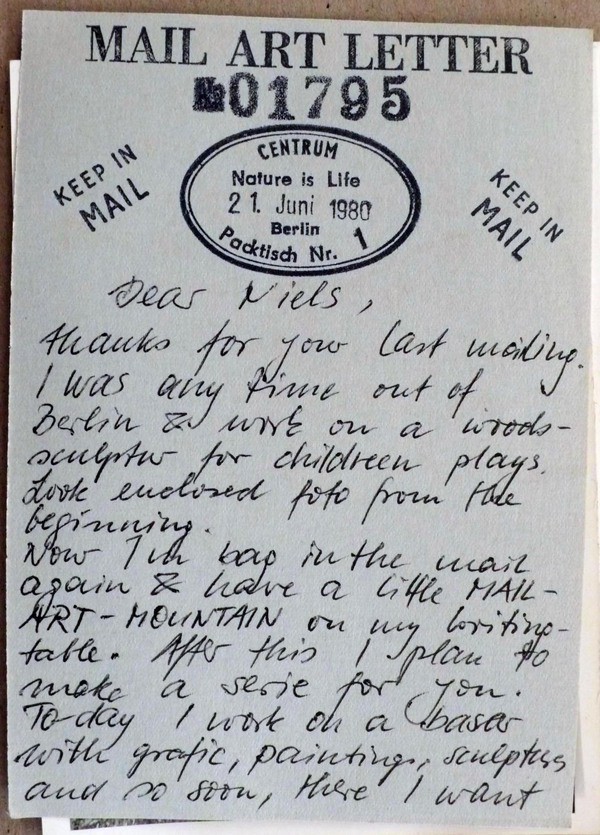 MAIL ART LETTER
№01795
KEEP IN
MAIL
CENTRUM
Nature is Life
21. Juni 1980
Berlin
Packtisch Nr. 1
KEEP IN
MAIL
Dear Niels,
thanks for your last mailing.
I was any time out of
Berlin & work on a woods-
sculptur for childreen plays.
Look enclosed foto from the
beginning.
Now I'm bag in the mail
again & have a little MAIL-
ART-MOUNTAIN on my writing-
table. After this I plan to
make a serie for you.
To-day I work on a basar
with grafic, paintings, sculpturs
and so soon, there I want